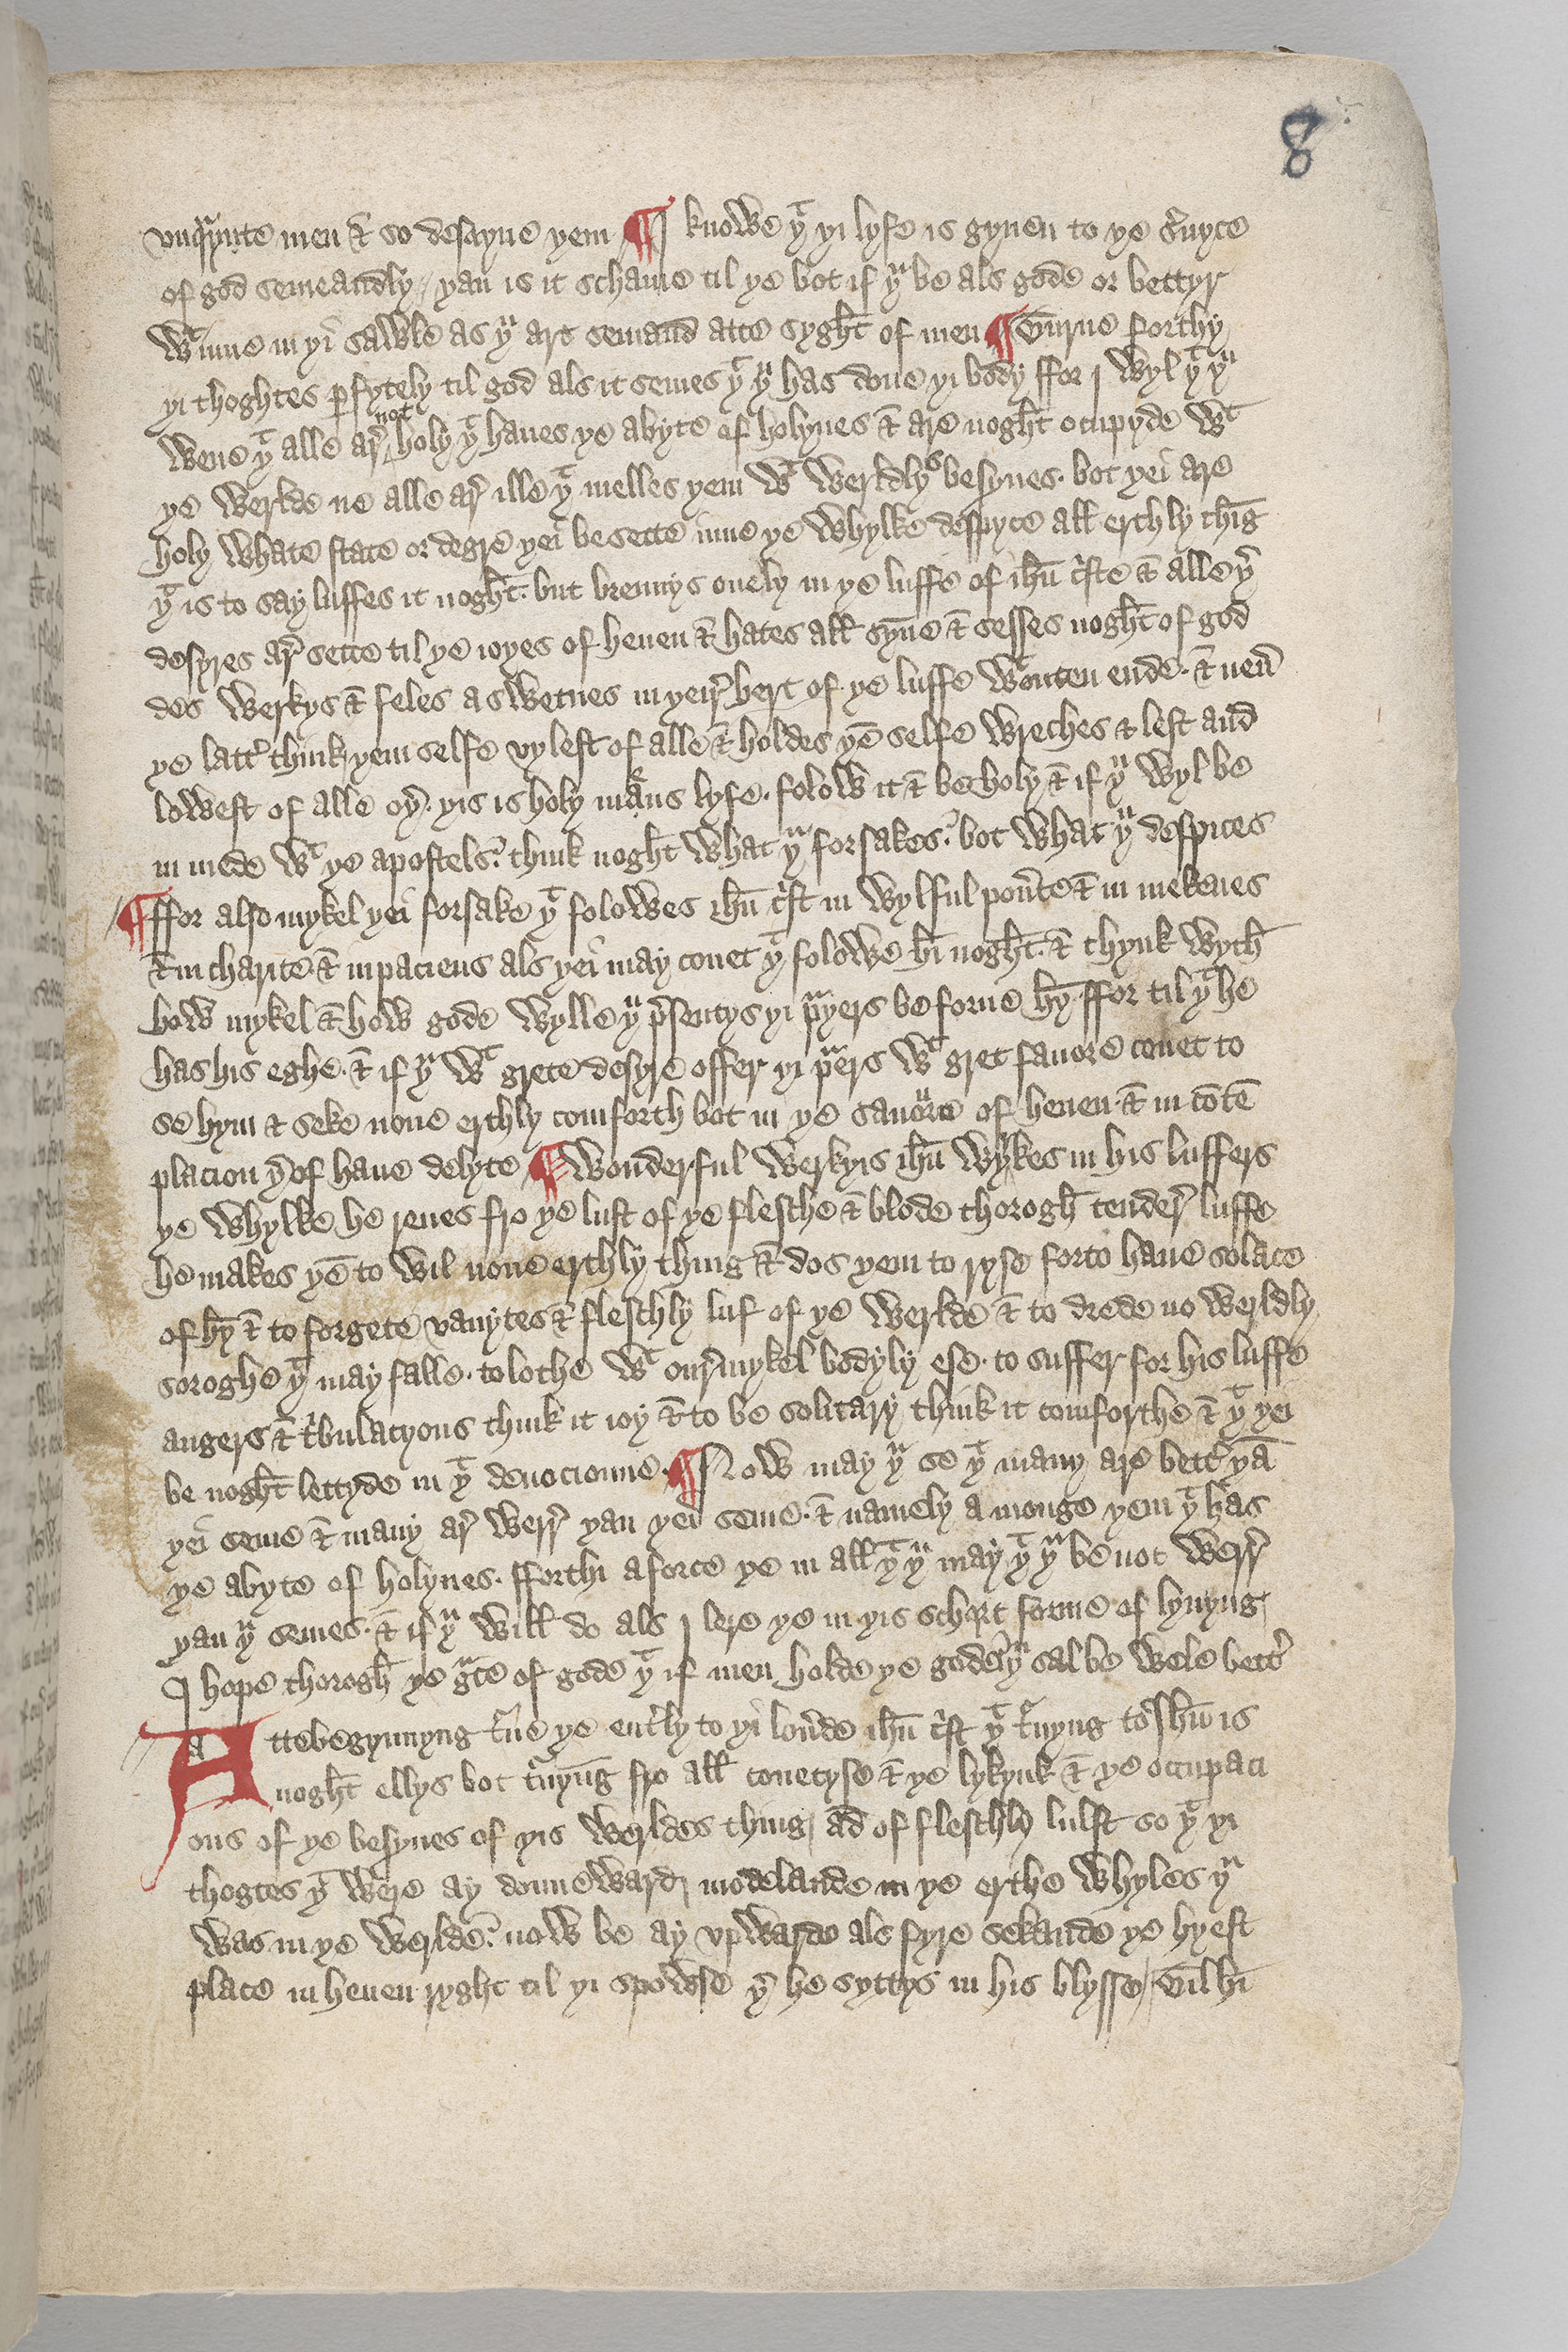 8
vnqͣynte men & so desayue yem ¶ I knowe yͭ yi lyfe is gyuen to ye s̛uyce
of god semeandly / yan is it schame til ye bot if yͧ be als gode or bettyr
wͭ inne in yi sawle as yͧ art semand atte syght of men ¶ Turne forthy
yi thoghtes ꝑfytely til god als it semes yͭ yͧ has done yi body ffor I wyl yͭ yͧ
wene yͭ alle ar̛ not holy yͭ haues ye abyte of holynes & are noght ocupyde wͭ
ye werlde ne alle ar̛ ille yͭ melles yem wͭ werldly besynes . bot yei are
holy whate state or degre yei be sette inne ye whylke despyce all erthly thīg
yͭ is to say luffes it noght . but brennys onely in ye luffe of ihū c̛ste & alle yʳ
desyres ar̛ sette til ye ioyes of heuen & hates all syne & sesses noght of god
des werkys & feles a swetnes in yeir̛ hert of ye luffe wͭouten ende . & neư
ye latt̛ think yem selfe vylest of alle & holdes yē selfe wreches & lest and
lowest of alle oy̛ . yis is holy mans lyfe . folow it & be holy & if yͧ wyl be
in mede wͭ ye apostels : think noght what yͧ forsakes : bot what yͧ despices
¶ ffor also mykel yei forsake yͭ folowes ihū c̛st in wylful poưte & in mekenes
& in charite & in paciens als yei may couet yͭ folowe hī noght . & thynk wyth
how mykel & how gode wylle yͧ p̛sentys yi pͣyers be forne hȳ . ffor til yͭ he
has his eghe . & if yͧ wͭ grete desyre offer yi pͣers wͭ gret fauore couet to
se hym & seke none erthly comforth bot in ye sauoure of heuen & in cōtē
placion y̛of haue delyte ¶ wonderful werkyis ihū wyrkes in his luffers
ye whylke he reues fro ye lust of ye flesche & blode thorogh tender̛ luffe
he makes yē to wil none erthly thing & dos yem to ryse forto haue solace
of hȳ & to forgete vanytes & fleschly luf of ye werlde & to drede no werldly
soroghe yͭ may falle . to lothe wͭ oưmykel bodyly ese . to suffer for his luffe
angers & t̛bulacyons think it ioy & to be solitary think it comforthe & yͭ yei
be noght lettyde in yͭ deuocionne . ¶ Now may yͧ se yͭ many are bett̛ yā
yei seme & many ar̛ werr̛ yan yei seme . & namely a monge yem yͭ has
ye abyte of holynes . fforthi aforce ye in all yͭ yͧ may yͭ yͧ be not werr̛
yan yͧ semes . & if yͧ will do als I lere ye in yis schort forme of lyuyng
I hope thorogh ye gͣce of gode yͭ if men holde ye gode yͧ sal be wele bett̛
A ttebegynnyng t̛ne ye ent̛ly to yi loưde ihū c̛st yͭ t̛nyng to Ihū is
noght ellys bot t̛nyng fro all couetyse & ye lykynk & ye occupaci
ons of ye besynes of yis werldes thing / ād of fleschly lulst so yͭ yi
thogtes yͭ were ay donneward modelande in ye erthe whyles yͧ
was in ye werlde : now be ay vpwarde als fyre sekande ye hyest
place in heuen ryght til yi spowse y̛ he syttys in his blysse / Til hī